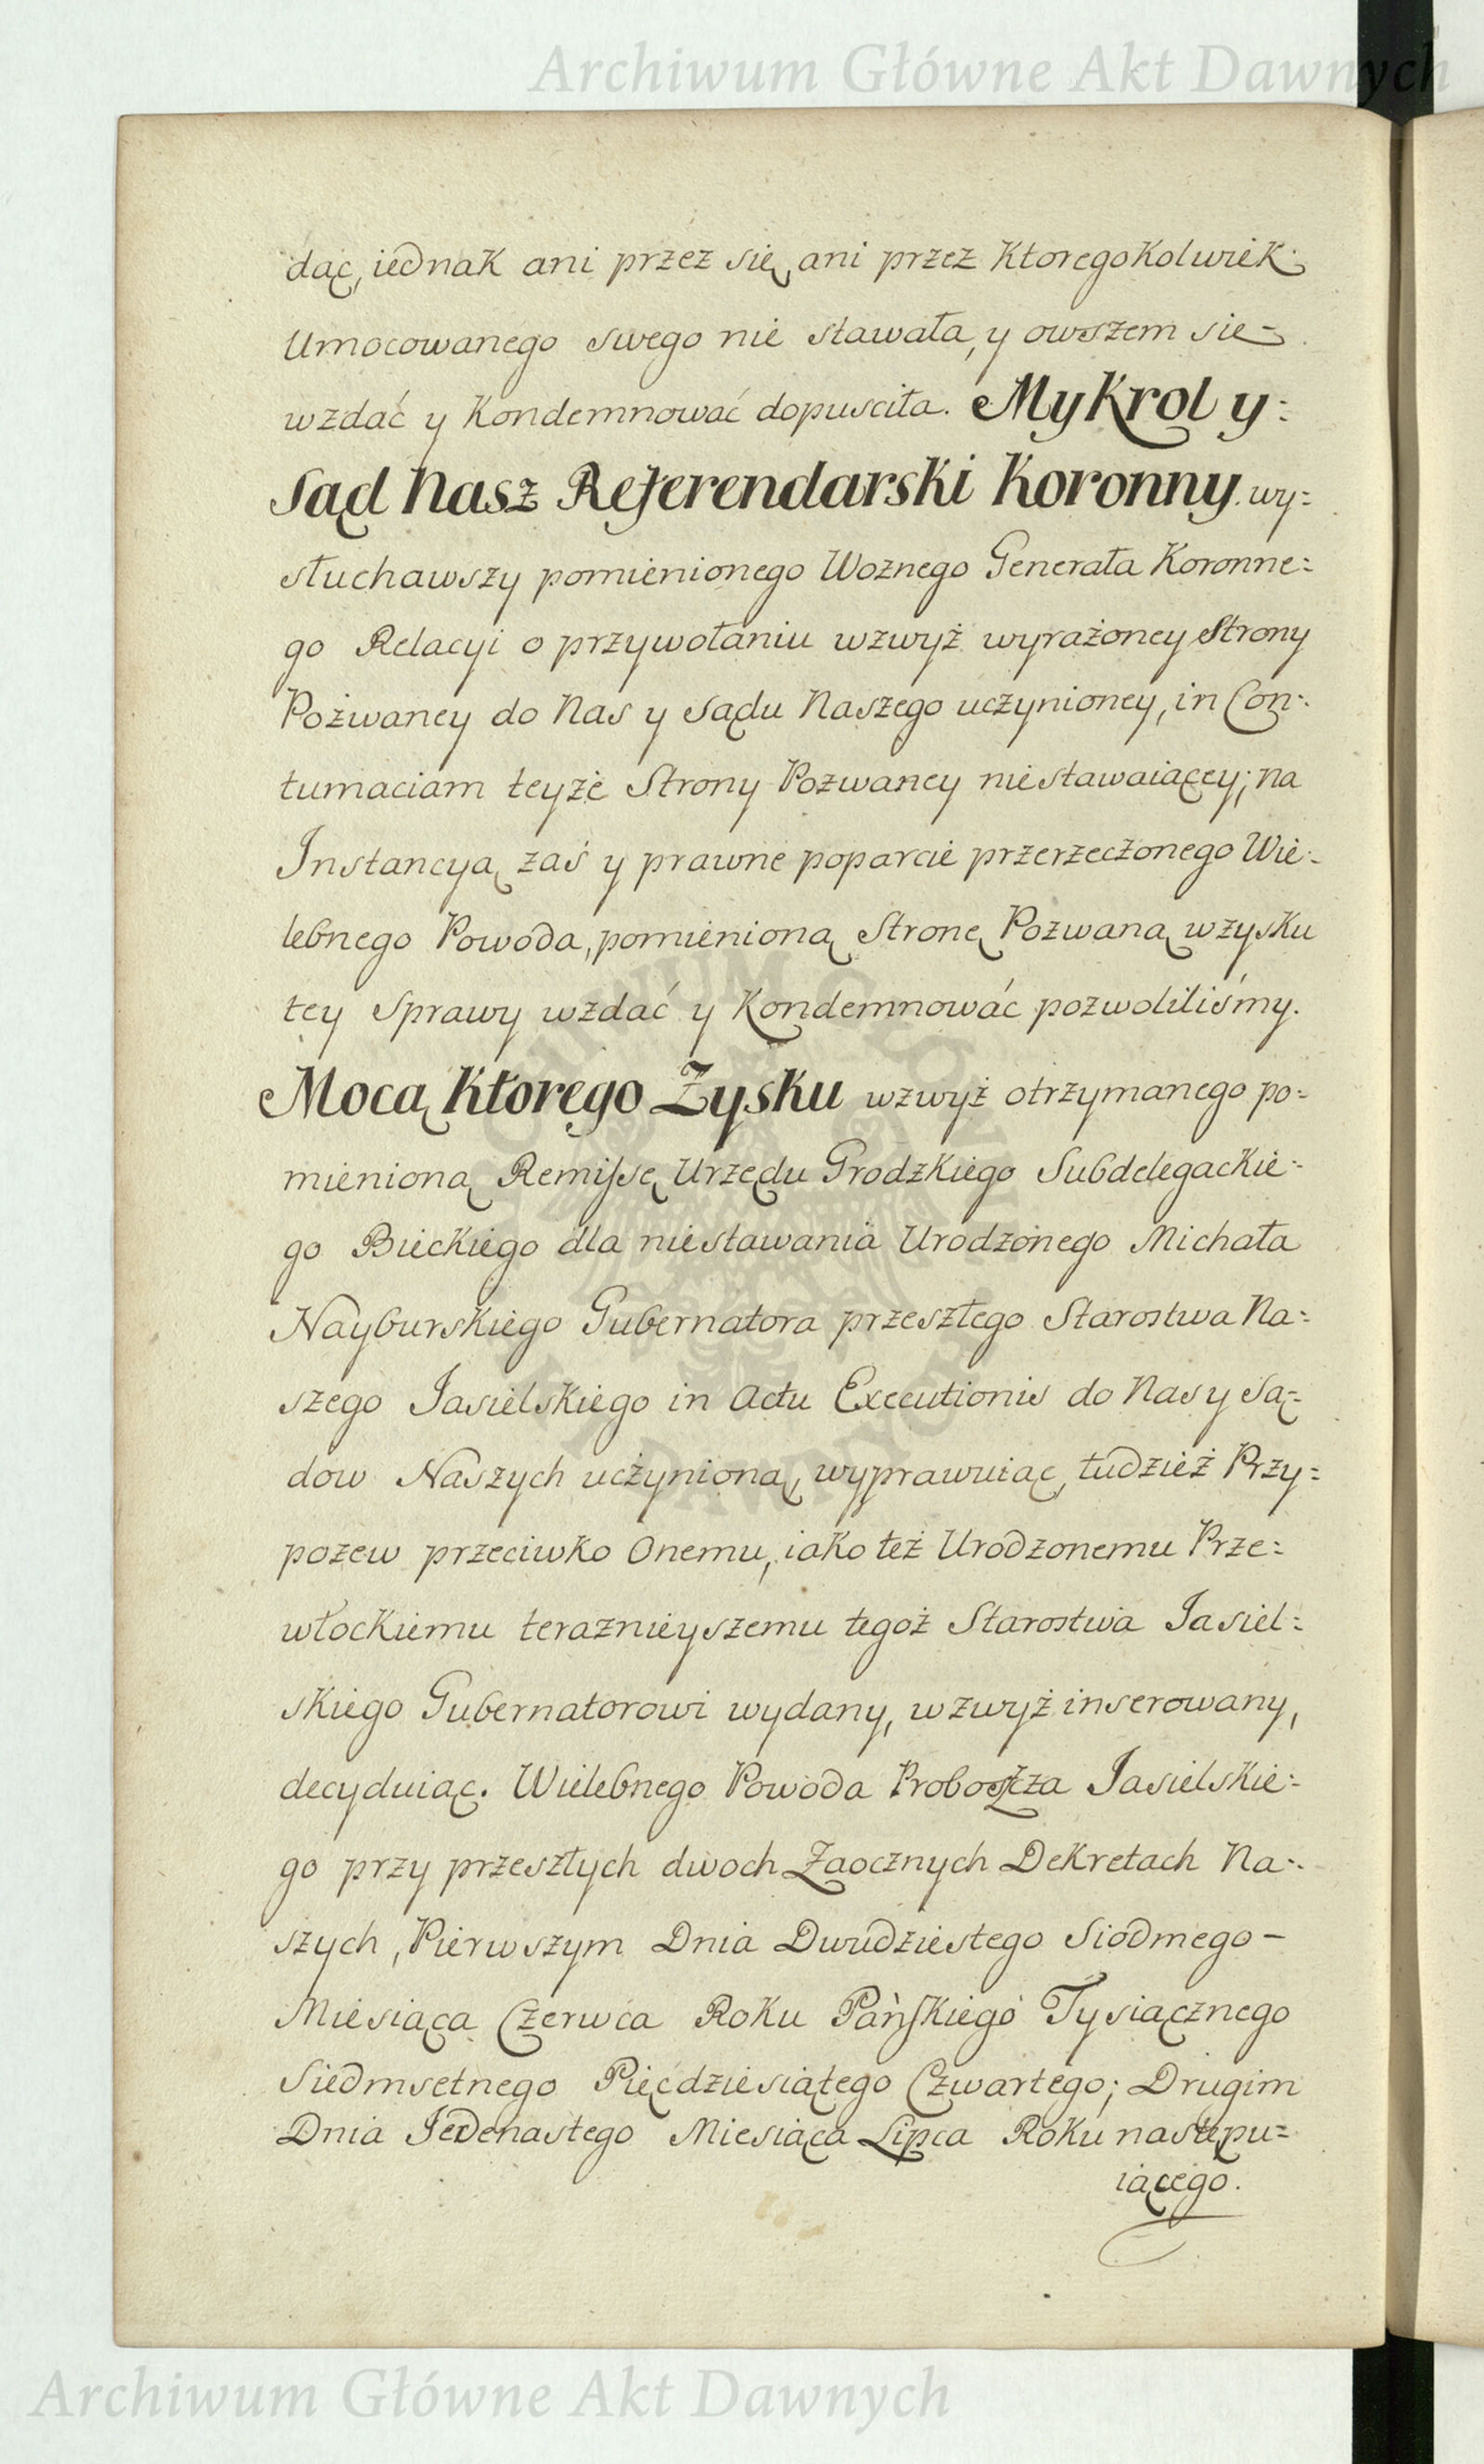 Archiwum Główne Akt Dawnych
dąc, iednak ani przez się, ani przez Ktoregokolwiek
Umocowanego swego nie stawała, y owszem się
wzdać y Kondemnować dopusciła. My Krol y:
Sąd Nasz Referendarski Koronny. wy:
słuchawszy pomienionego Woznego Generała Koronne:
go Relacyi o przywołaniu wzwyż wyrażoney Strony
Pożwaney do Nas y Sądu Naszego uczynioney, in Con:
tumaciam teyże Strony Pozwaney niestawaiącey; na
Instancyą zaś y prawne poparcie przerzeczonego Wie:
lebnego Powoda, pomienioną Stronę Pozwaną w zysku
tey Sprawy wzdać y Kondemnować pozwoliliśmy.
Mocą Ktorego Zysku wzwyż otrzymanego po:
mienioną Remissę Urzędu Grodzkiego Subdelegackie:
go Bieckiego dla niestawania Urodzonego Michała
Nayburskiego Gubernatora przeszłego Starostwa Na:
szego Jasielskiego in Actu Executionis do Nas y Są:
dow Naszych uczynioną, wyprawuiąc, tudzież Przy:
pozew przeciwko Onemu, iako też Urodzonemu Prze:
włockiemu teraznieyszemu tegoż Starostwa Jasiel:
skiego Gubernatorowi wydany, wzwyż inserowany,
decyduiąc. Wielebnego Powoda Proboszcza Jasielskie:
go przy przeszłych dwoch Zaocznych Dekretach Na:
szych, Pierwszym Dnia Dwudziestego Siodmego -
Miesiąca Czerwca Roku Pańskiego Tysiącznego
Siedmsetnego Pięćdziesiątego Czwartego; Drugim
Dnia Jedenastego Miesiąca Lipca Roku nastąpu:
iącego.
Archiwum Główne Akt Dawnych